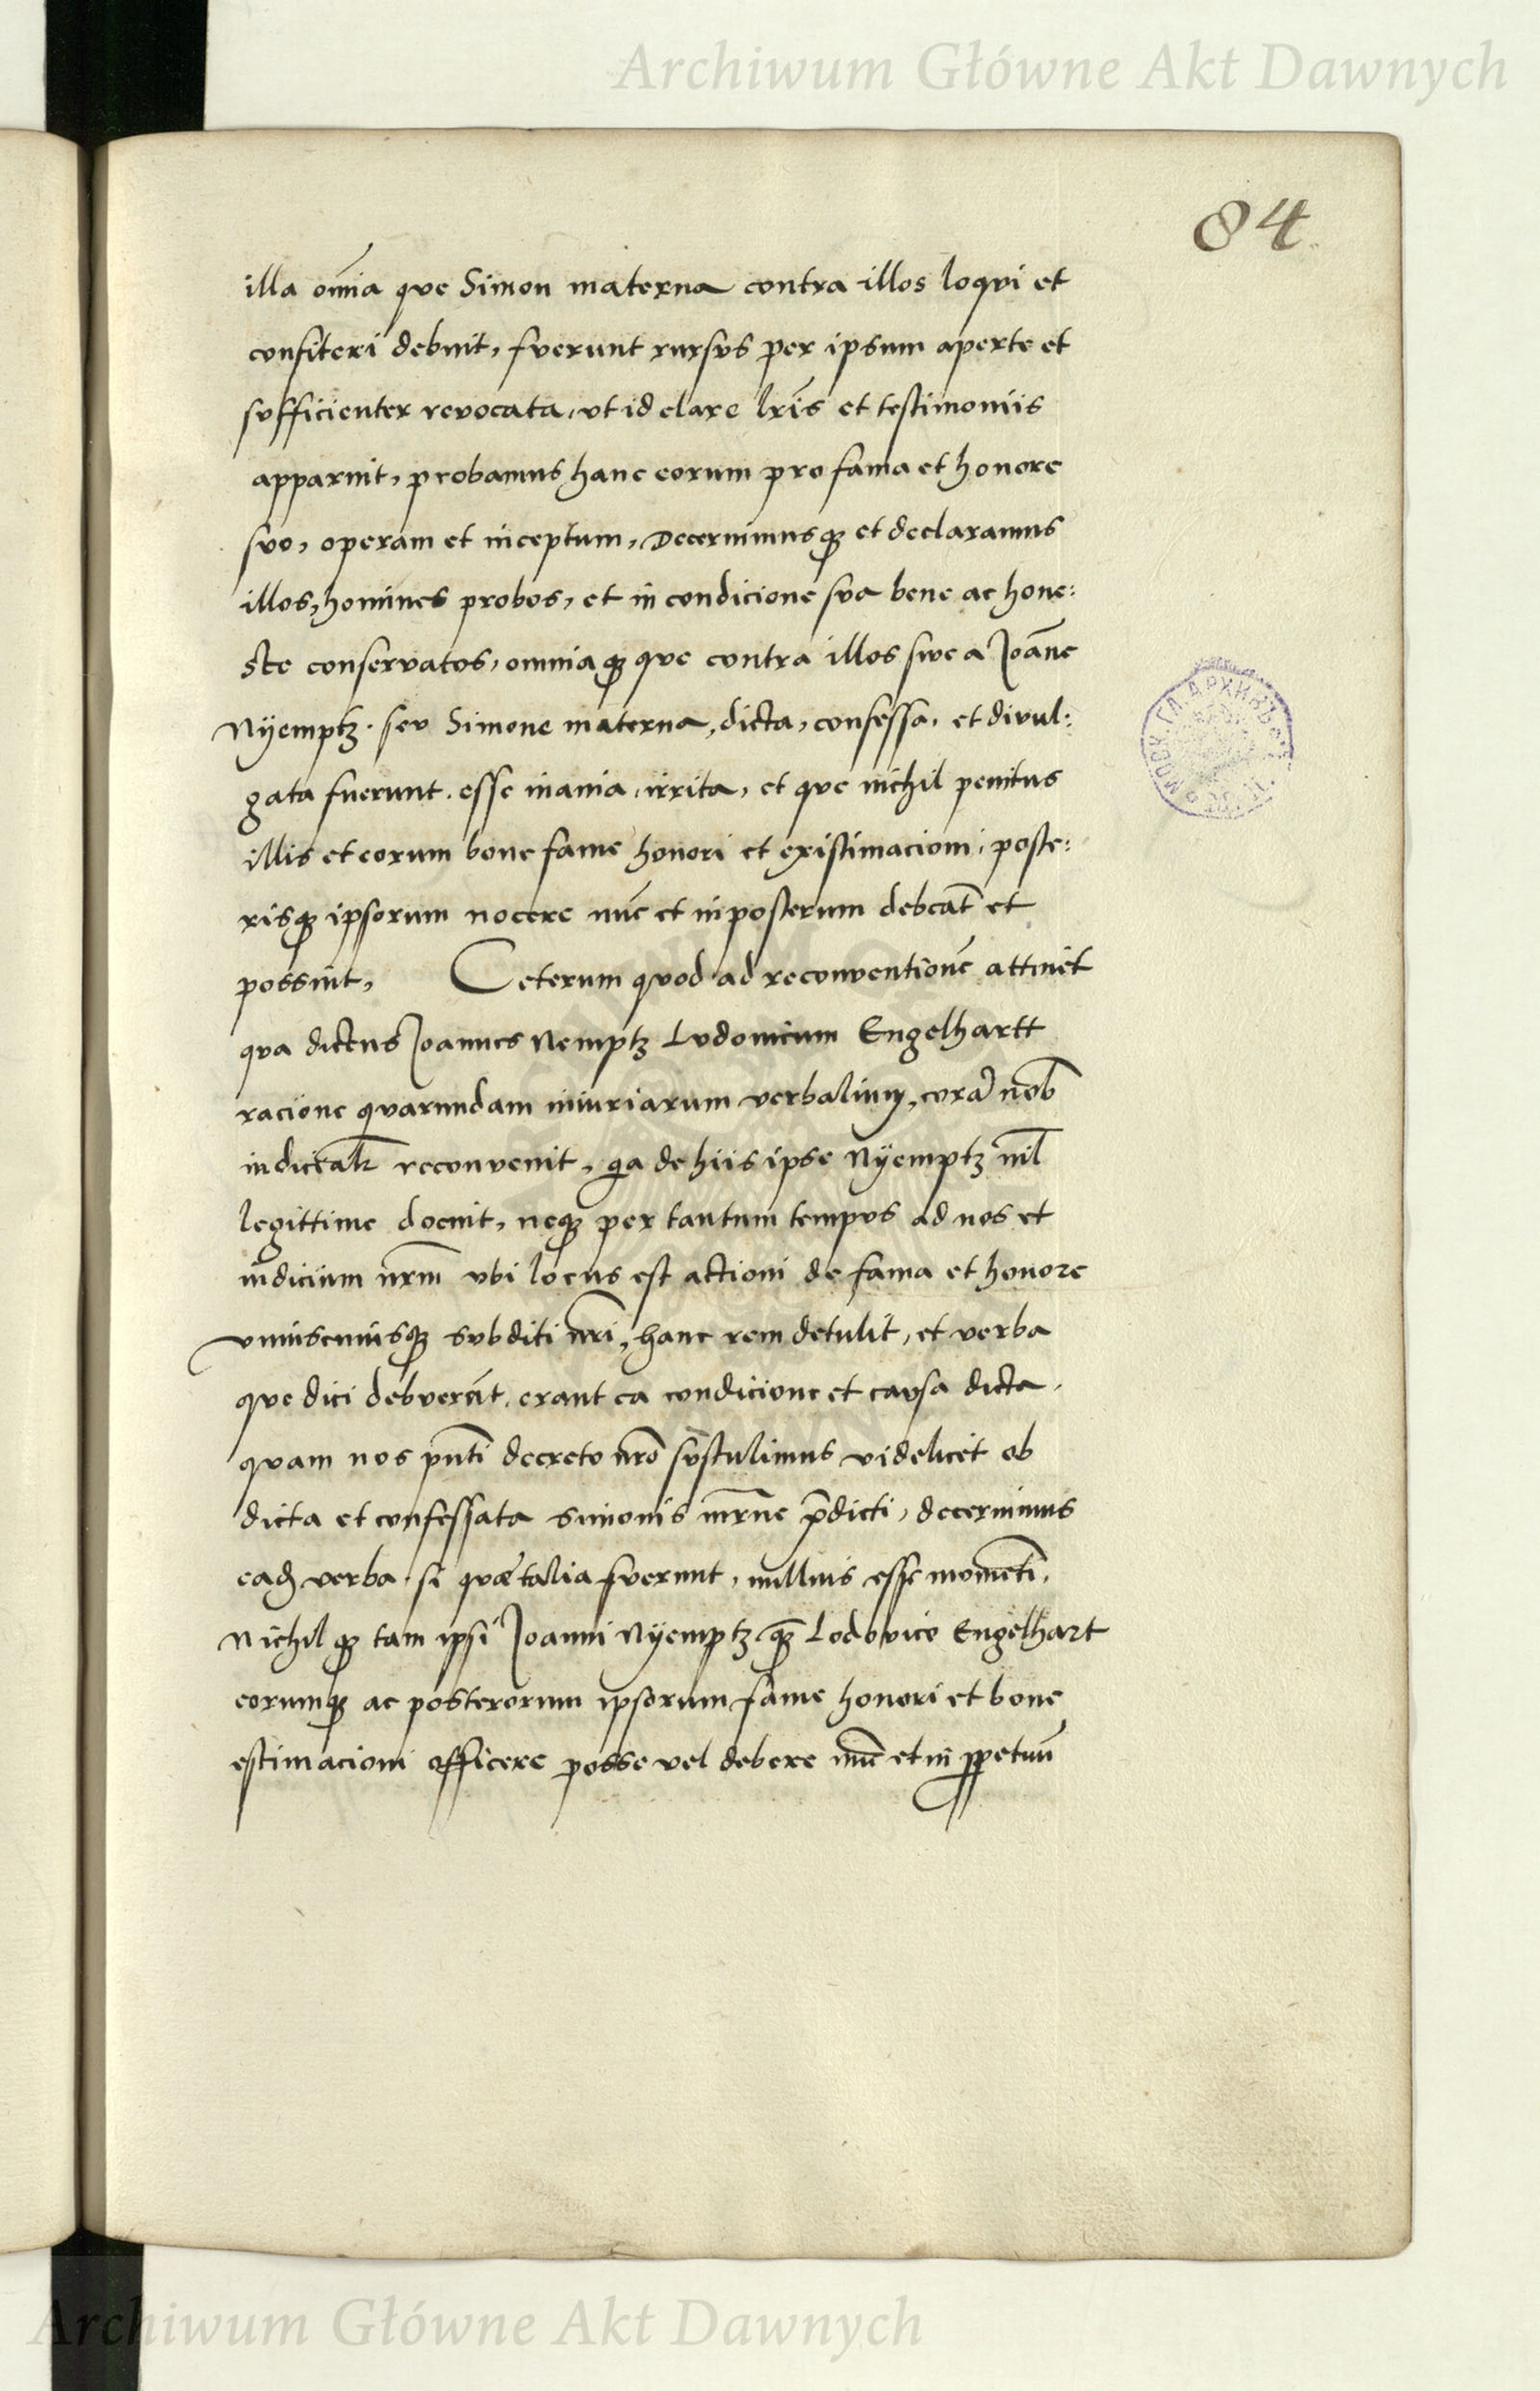 Archiwum Główne Akt Dawnych
84
illa om̄ia que Simon materna contra illos loqui et
confiteri debuit, fuerunt rursus per ipsum aperte et
sufficienter revocata, ut id clare lr̄is et testimoniis
apparuit, probamus hanc eorum pro fama et honore
suo, operam et inceptum, Decernimusq; et declaramus
illos, homines probos, et in condicione sua bene ac hone:
ste conservatos, omniaq; que contra illos sive a Joāne
Nÿemptz. seu Simone materna, dicta, confessa, et divul:
gata fuerunt. esse inania, irrita, et que nichil penitus
illis et eorum bone fame honori et existimacioni, poste:
risq; ipsorum nocere nūc et inposterum debeāt et
possint, Ceterum quod ad reconventionē attinet
qua dictus Joannes Nemptz Ludovicum Engelhartt
racione quarundam iniuriarum verbalium, corā nob̄
indictalr̄ reconvenit, qa de hiis ipse Nÿemptz nīl
legittime docuit, neq; per tantum tempus ad nos et
iudicium nr̄m ubi locus est actioni de fama et honore
uniuscuiusq; subditi nr̄i, hanc rem detulit, et verba
que dici debuerāt, erant ea condicione et causa dicta,
quam nos pn̄ti decreto nr̄o sustulimus videlicet ob
dicta et confessata Simonis mr̄ne p̄dicti, decernimus
eadē verba, si quæ talia fuerunt, nullius esse momēti,
Nichilq; tam ipsi Joanni Nÿemptz q̄ Lodovico Engelhart
eorumq; ac posterorum ipsorum fame honori et bone
estimacioni officere posse vel debere nūc et in ꝑpetuū
Archiwum Główne Akt Dawnych